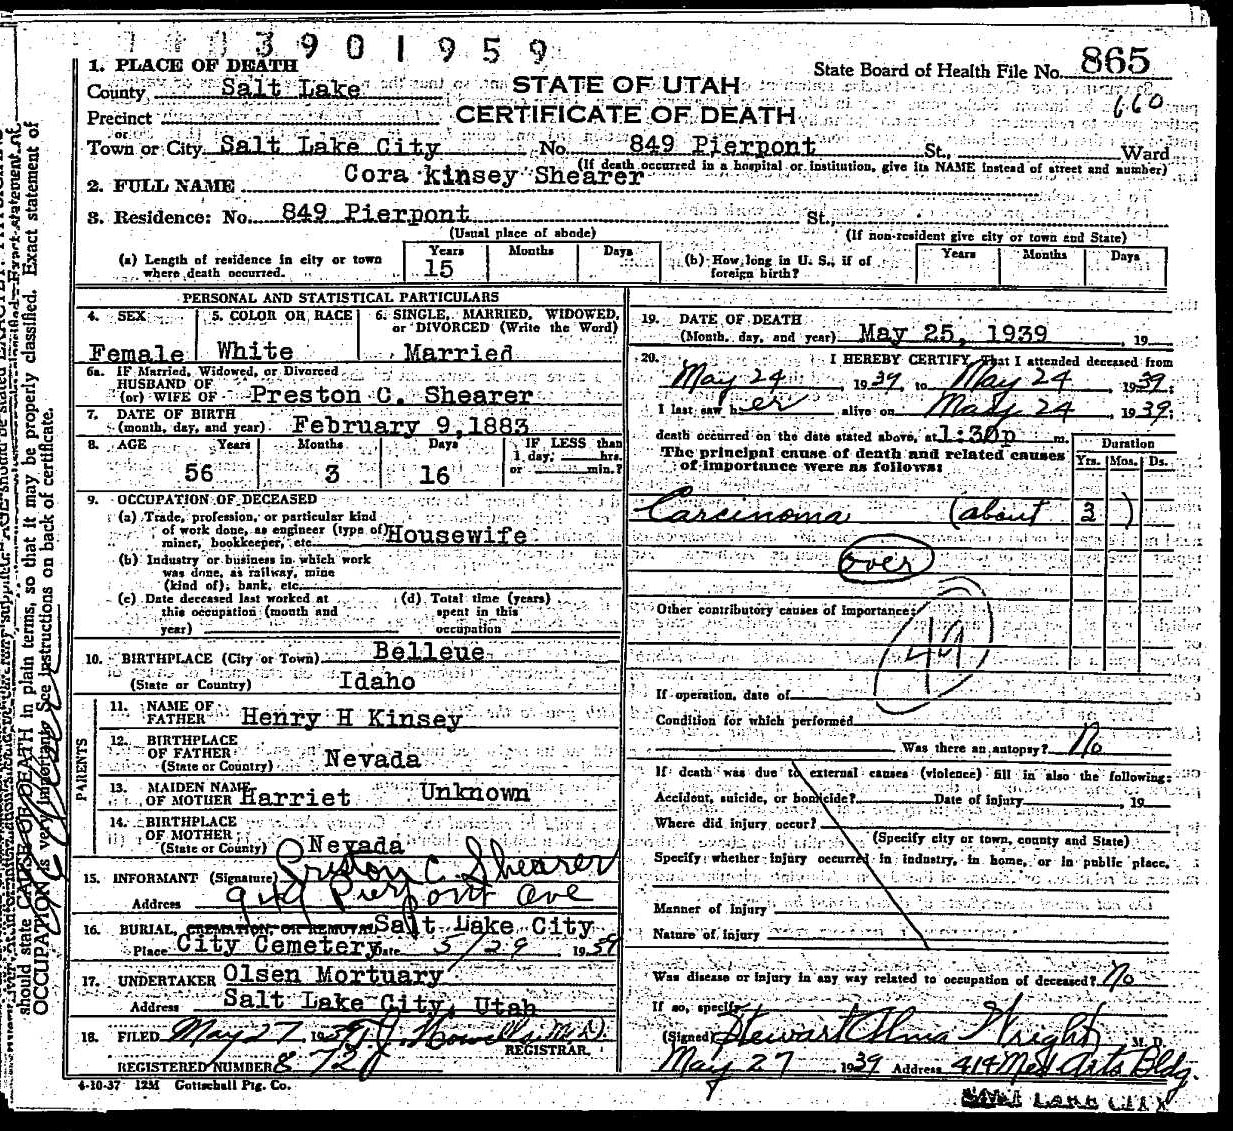 3901959
1. PLACE OF DEATH
State Board of Health File No. 865
County Salt Lake
STATE OF UTAH
660
Precinct
CERTIFICATE OF DEATH
or
Town or City Salt Lake City No. 849 Pierpont St., Ward
(If death occurred in a hospital or institution, give its NAME instead of street and number)
2. FULL NAME Cora Kinsey Shearer
3. Residence: No. 849 Pierpont St.,
(Usual place of abode) (If non-resident give city or town and State)
(a) Length of residence in city or town where death occurred. Years 15 Months Days
(b) How long in U. S., if of foreign birth? Years Months Days
PERSONAL AND STATISTICAL PARTICULARS
4. SEX 5. COLOR OR RACE 6. SINGLE, MARRIED, WIDOWED, or DIVORCED (Write the Word)
Female White Married
6a. IF Married, Widowed, or Divorced
HUSBAND OF
(or) WIFE OF Preston C. Shearer
7. DATE OF BIRTH
(month, day, and year) February 9,1883
8. AGE Years Months Days IF LESS than
1 day, hrs.
or min.?
56 3 16
9. OCCUPATION OF DECEASED
(a) Trade, profession, or particular kind
of work done, as engineer (type of)
miner, bookkeeper, etc. Housewife
(b) Industry or business in which work
was done, as railway, mine
(kind of); bank, etc.
(c) Date deceased last worked at
this occupation (month and
year)
(d) Total time (years)
spent in this
occupation
10. BIRTHPLACE (City or Town) Belleue
(State or Country) Idaho
PARENTS
11. NAME OF
FATHER Henry H Kinsey
12. BIRTHPLACE
OF FATHER
(State or Country) Nevada
13. MAIDEN NAME
OF MOTHER Harriet Unknown
14. BIRTHPLACE
OF MOTHER
(State or Country) Nevada
15. INFORMANT (Signature) Preston C. Shearer
Address 949 Pierpont Ave
16. BURIAL, CREMATION, OR REMOVAL Salt Lake City
Place City Cemetery Date 5/29 1939
17. UNDERTAKER Olsen Mortuary
Address Salt Lake City, Utah
18. FILED May 27 1939 T. J. Howells M.D.
REGISTRAR.
REGISTERED NUMBER 8720
4-10-37 12M Gottschall Ptg. Co.
19. DATE OF DEATH
(Month, day, and year) May 25, 1939 , 19
20. I HEREBY CERTIFY, That I attended deceased from
May 24, 1939, to May 24, 1939;
I last saw her alive on May 24, 1939;
death occurred on the date stated above, at 1:30p m.
The principal cause of death and related causes
of importance were as follows:
Duration
Yrs. Mos. Ds.
Carcinoma (about 3 )
over
Other contributory causes of importance:
49
If operation, date of
Condition for which performed
Was there an autopsy? No
If death was due to external causes (violence) fill in also the following:
Accident, suicide, or homicide? Date of injury , 19
Where did injury occur?
(Specify city or town, county and State)
Specify whether injury occurred in industry, in home, or in public place.
Manner of injury
Nature of injury
Was disease or injury in any way related to occupation of deceased? No
If so, specify
(Signed) Stewart Alma Wright, M. D.
May 27 1939 Address 414 Med Arts Bldg.
Salt Lake City
should state CAUSE OF DEATH in plain terms, so that it may be properly classified. Exact statement of
OCCUPATION is very important. See instructions on back of certificate.